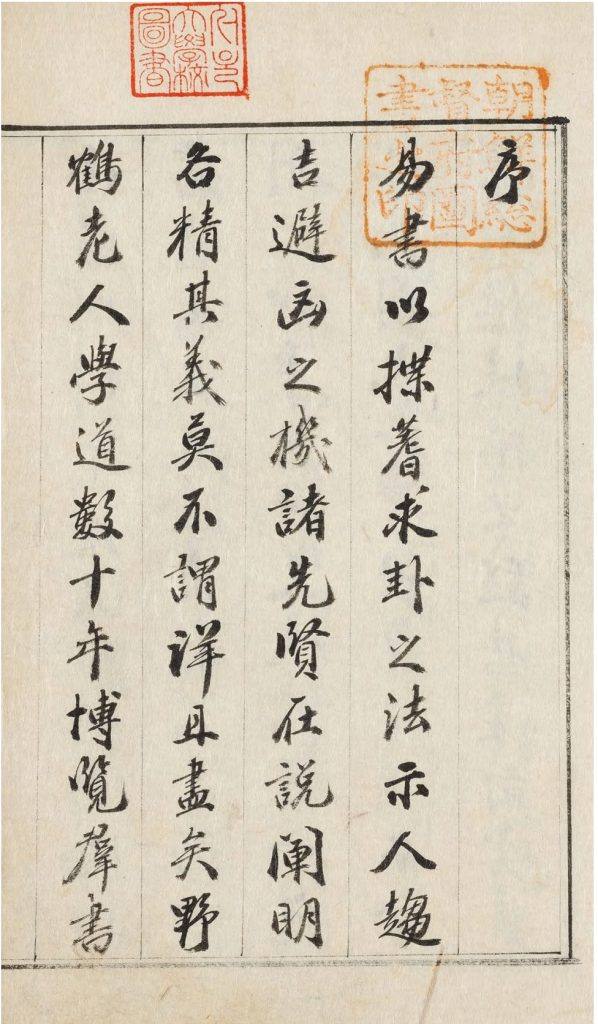 서울大學校圖書
朝鮮總督府圖書之印
序
易書以揲蓍求卦之法示人趨
吉避凶之機諸先賢在説闡明
各精其義莫不謂詳且盡矣野
鶴老人學道數十年博覽羣書